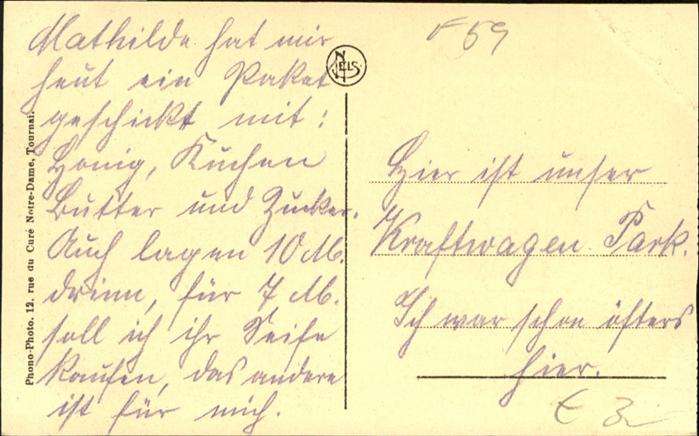 Mathilde hat mir
heut ein Paket
geschickt mit:
Honig, Kuchen
Butter und Zucker.
Auch lagen 10 M.
drinn, für 7 M.
soll ich ihr Seife
kaufen, das andere
ist für mich.
NELS
Phono-Photo. 12. rue du Curé Notre-Dame, Tournai.
59
Hier ist unser
Kraftwagen Park.
Ich war schon öfters
hier.
£ 3